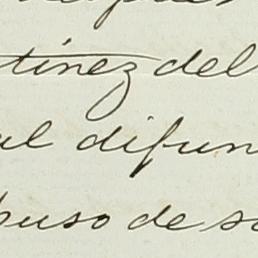 tinez del
al difun
puso de so